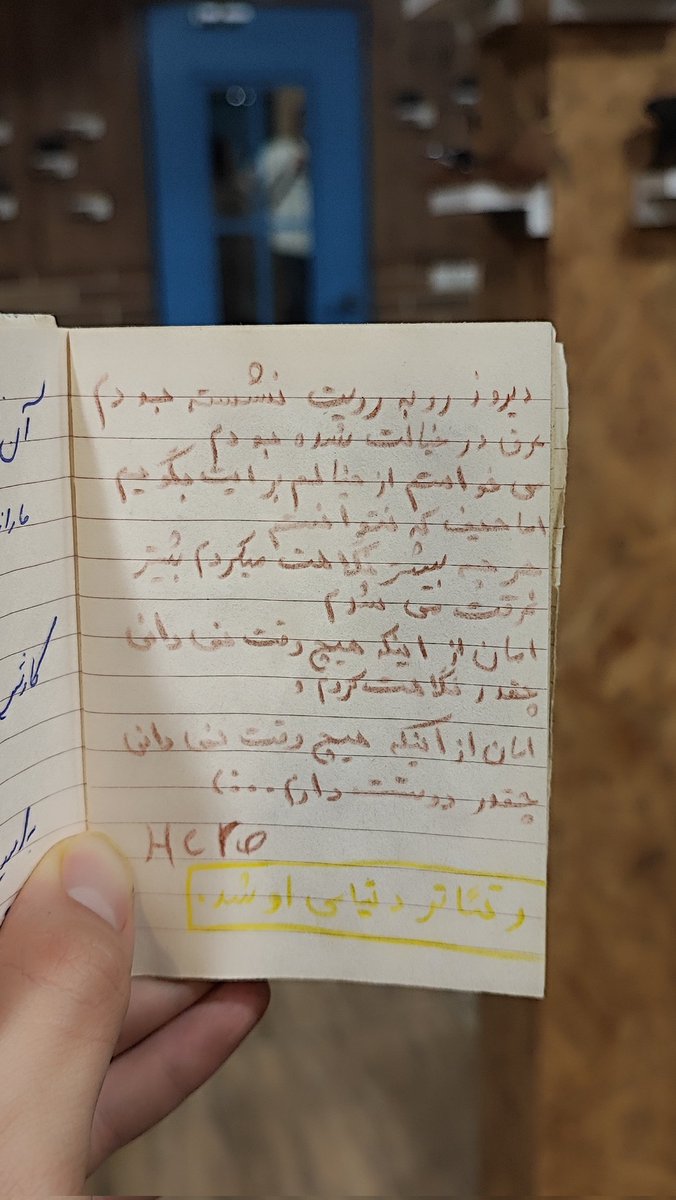 دیروز رو به رویت نشسته بودم
غرق در خیالت شده بودم
می خواستم از خیالم برایت بگویم
اما حیف که نتوانستم
هر چه بیشتر نگاهت میکردم بیشتر
غرقت می شدم
امان از اینکه هیچ وقت نمی دانی
چقدر نگاهت کردم و
امان از اینکه هیچ وقت نمی دانی
چقدر دوستت دارم....)
و تئاتر دنیای او شد.
آن